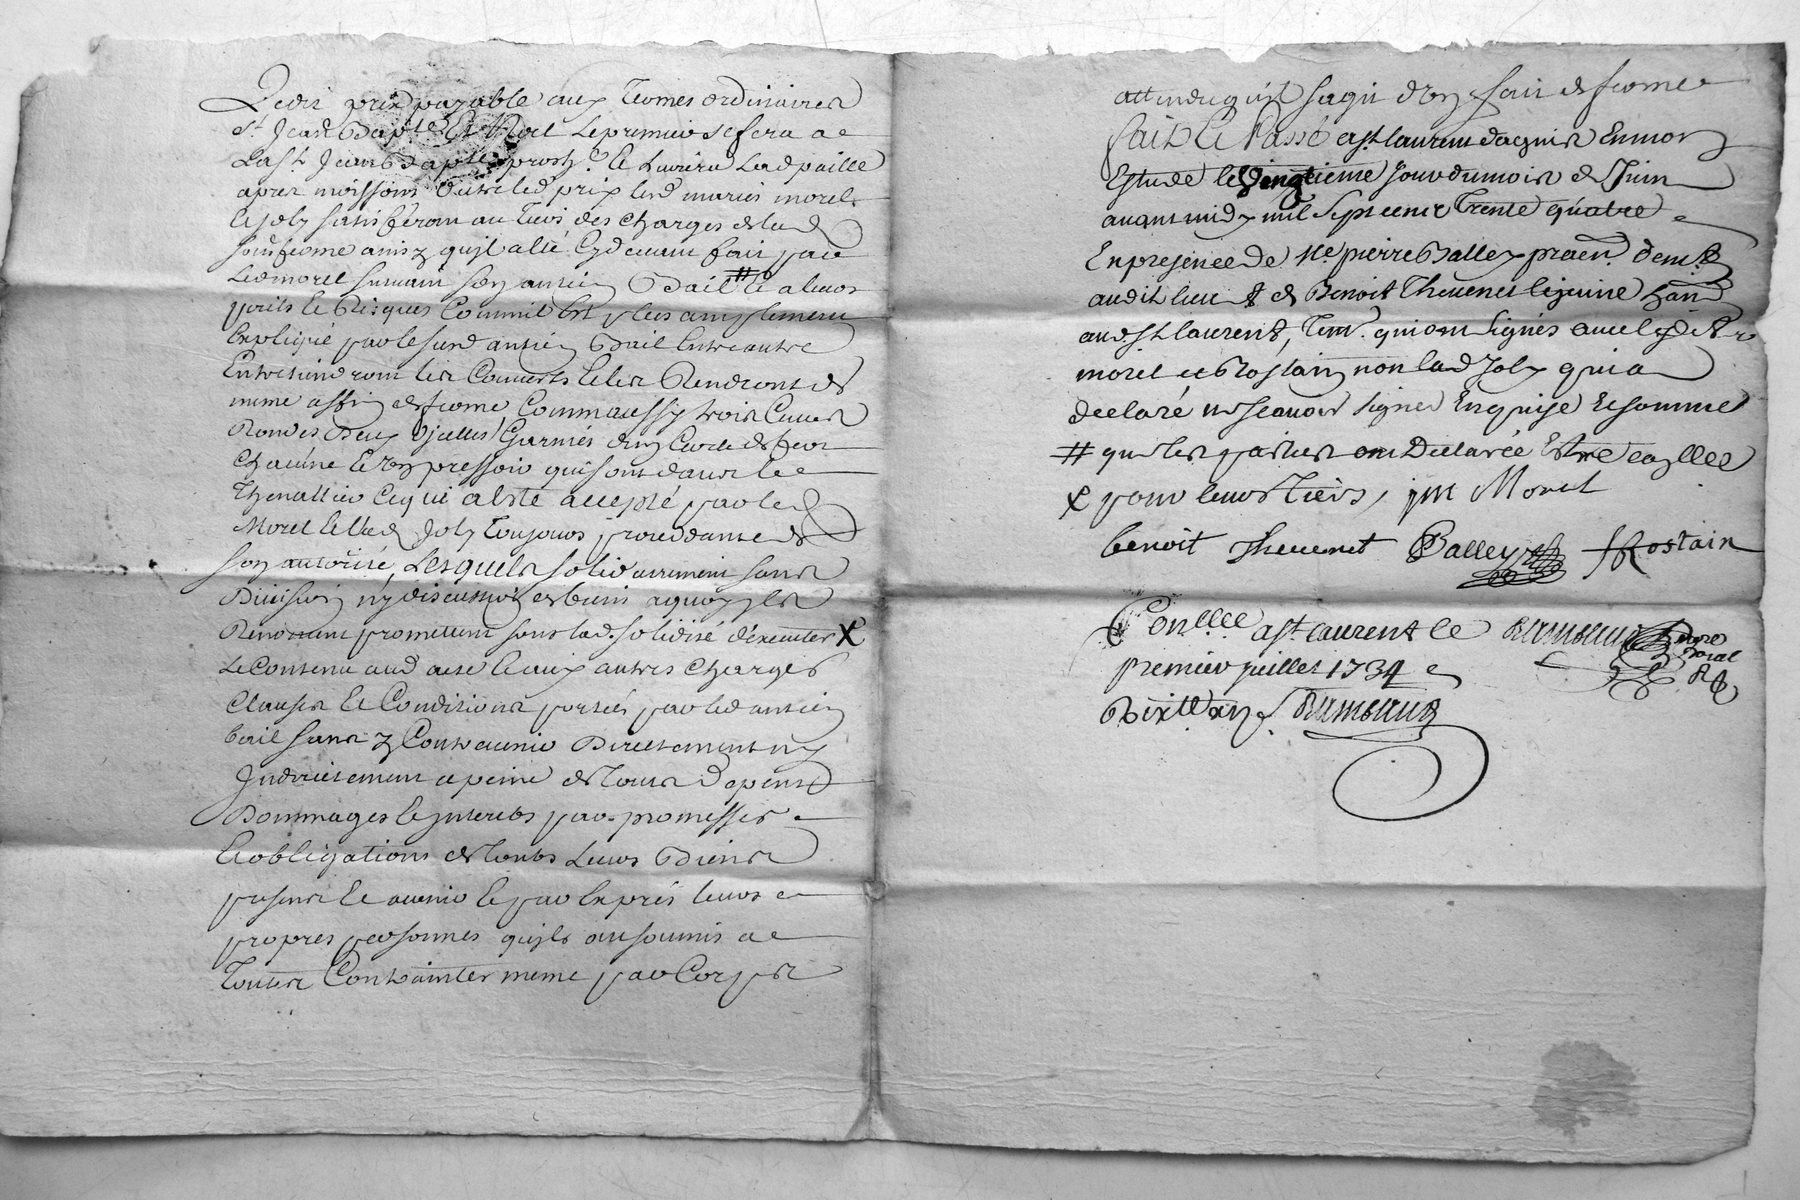 Ledit prix payable aux termes ordinaires
St Jean Bapte Et Noel Le premier se fera a
La St Jean Bapte proche le Lad paille
apres moissons outre led prix lesd mariés morel
Joly satisferont au Tiers des charges de lad
sousferme ainsy quil a été cy devant fait par
Led morel suivant son ancien Bail # a leurs
perils Et Risques Comme il Est plus amplement
Expliqué par le susd ancien Bail Entre autre
Entretiendront les Couverts Et les Rendront de
meme a fin de ferme Comm aussy trois Cuves
Rondes Deux Garnies de fer
chacune Et un pressoir qui sont dans le
Thenallier ce qui a Esté accepté par led
Morel Et lad Joly Toujours procedante de
son autorité, Lesquels solidairement sans
Division ny discussion de biens a quoy ils
Renoncent promettent sous lad. solidité d'executer X
Le Contenu aud acte Et aux autres Charges
Clauses Et Conditions portées par led ancien
bail sans y Contrevenir Directement ny
Indirectement a peine de tous depens
Dommages Et Interets par promesses
Et obligations de touts Leurs Biens
presents Et avenir Et par Exprés leurs
propres personnes quils ont soumis a
Toutes Contraintes meme par Corps
attendu quil sagit d'un fait de ferme
fait Et Passé a St laurent dagnis En mon
Estude le vingtieme jour du mois de Juin
avant midy mil sept cent Trente quatre
En presence de Me pierre Balley praen. demt
audit lieu & de Benoit Thevenet le jeune
aud. St laurent, Tem. qui ont signés avec led Sr
morel et Rostaing non lad Joly qui a
declaré ne scavoir signer Enquise Et sommé
# que les parties ont Declarée Estre
X pour leurs Tiers, Morel
benoit Thevenet Balley Rostain
Conllee a St Laurent le
premier juillet 1734